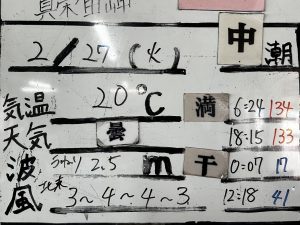 2/27(火) 中潮
気温 20℃ 満 6:24 134
天気 曇 18:15 133
波 うねり 2.5 m 干 0:07 17
風 北東 3~4~4~3 12:18 41